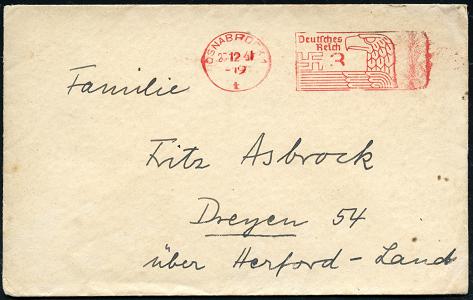 OSNABRÜCK 1
12 41
-19
t
Deutsches
Reich
3
Familie
Fritz Asbrock
Dreyen 54
über Herford-Land